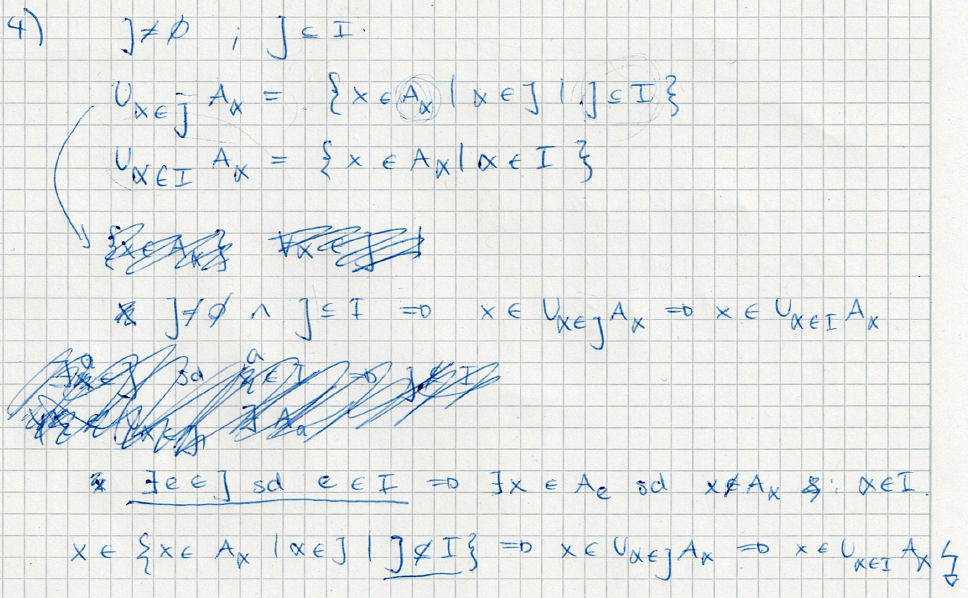 4) J ≠ ∅ ; J ⊆ I.
∪α∈J Aα = {x ∈ Aα | α ∈ J | J ⊆ I}
∪α∈I Aα = {x ∈ Aα | α ∈ I}
J ≠ ∅ ∧ J ⊆ I ⇒ x ∈ ∪α∈J Aα ⇒ x ∈ ∪α∈I Aα
∃e ∈ J sd e ∈ I ⇒ ∃x ∈ Ae sd x ∉ Aα : α ∈ I.
x ∈ {x ∈ Aα | α ∈ J | J ⊄ I} ⇒ x ∈ ∪α∈J Aα ⇒ x ∈ ∪α∈I Aα ↯